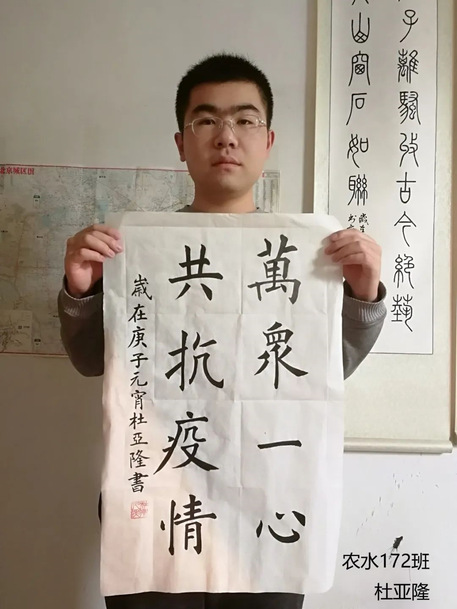 萬眾一心
共抗疫情
歲在庚子元宵杜亞隆書
子離騷收古今絕藝
山窗石如聯
北京城区图
农水172班
杜亚隆